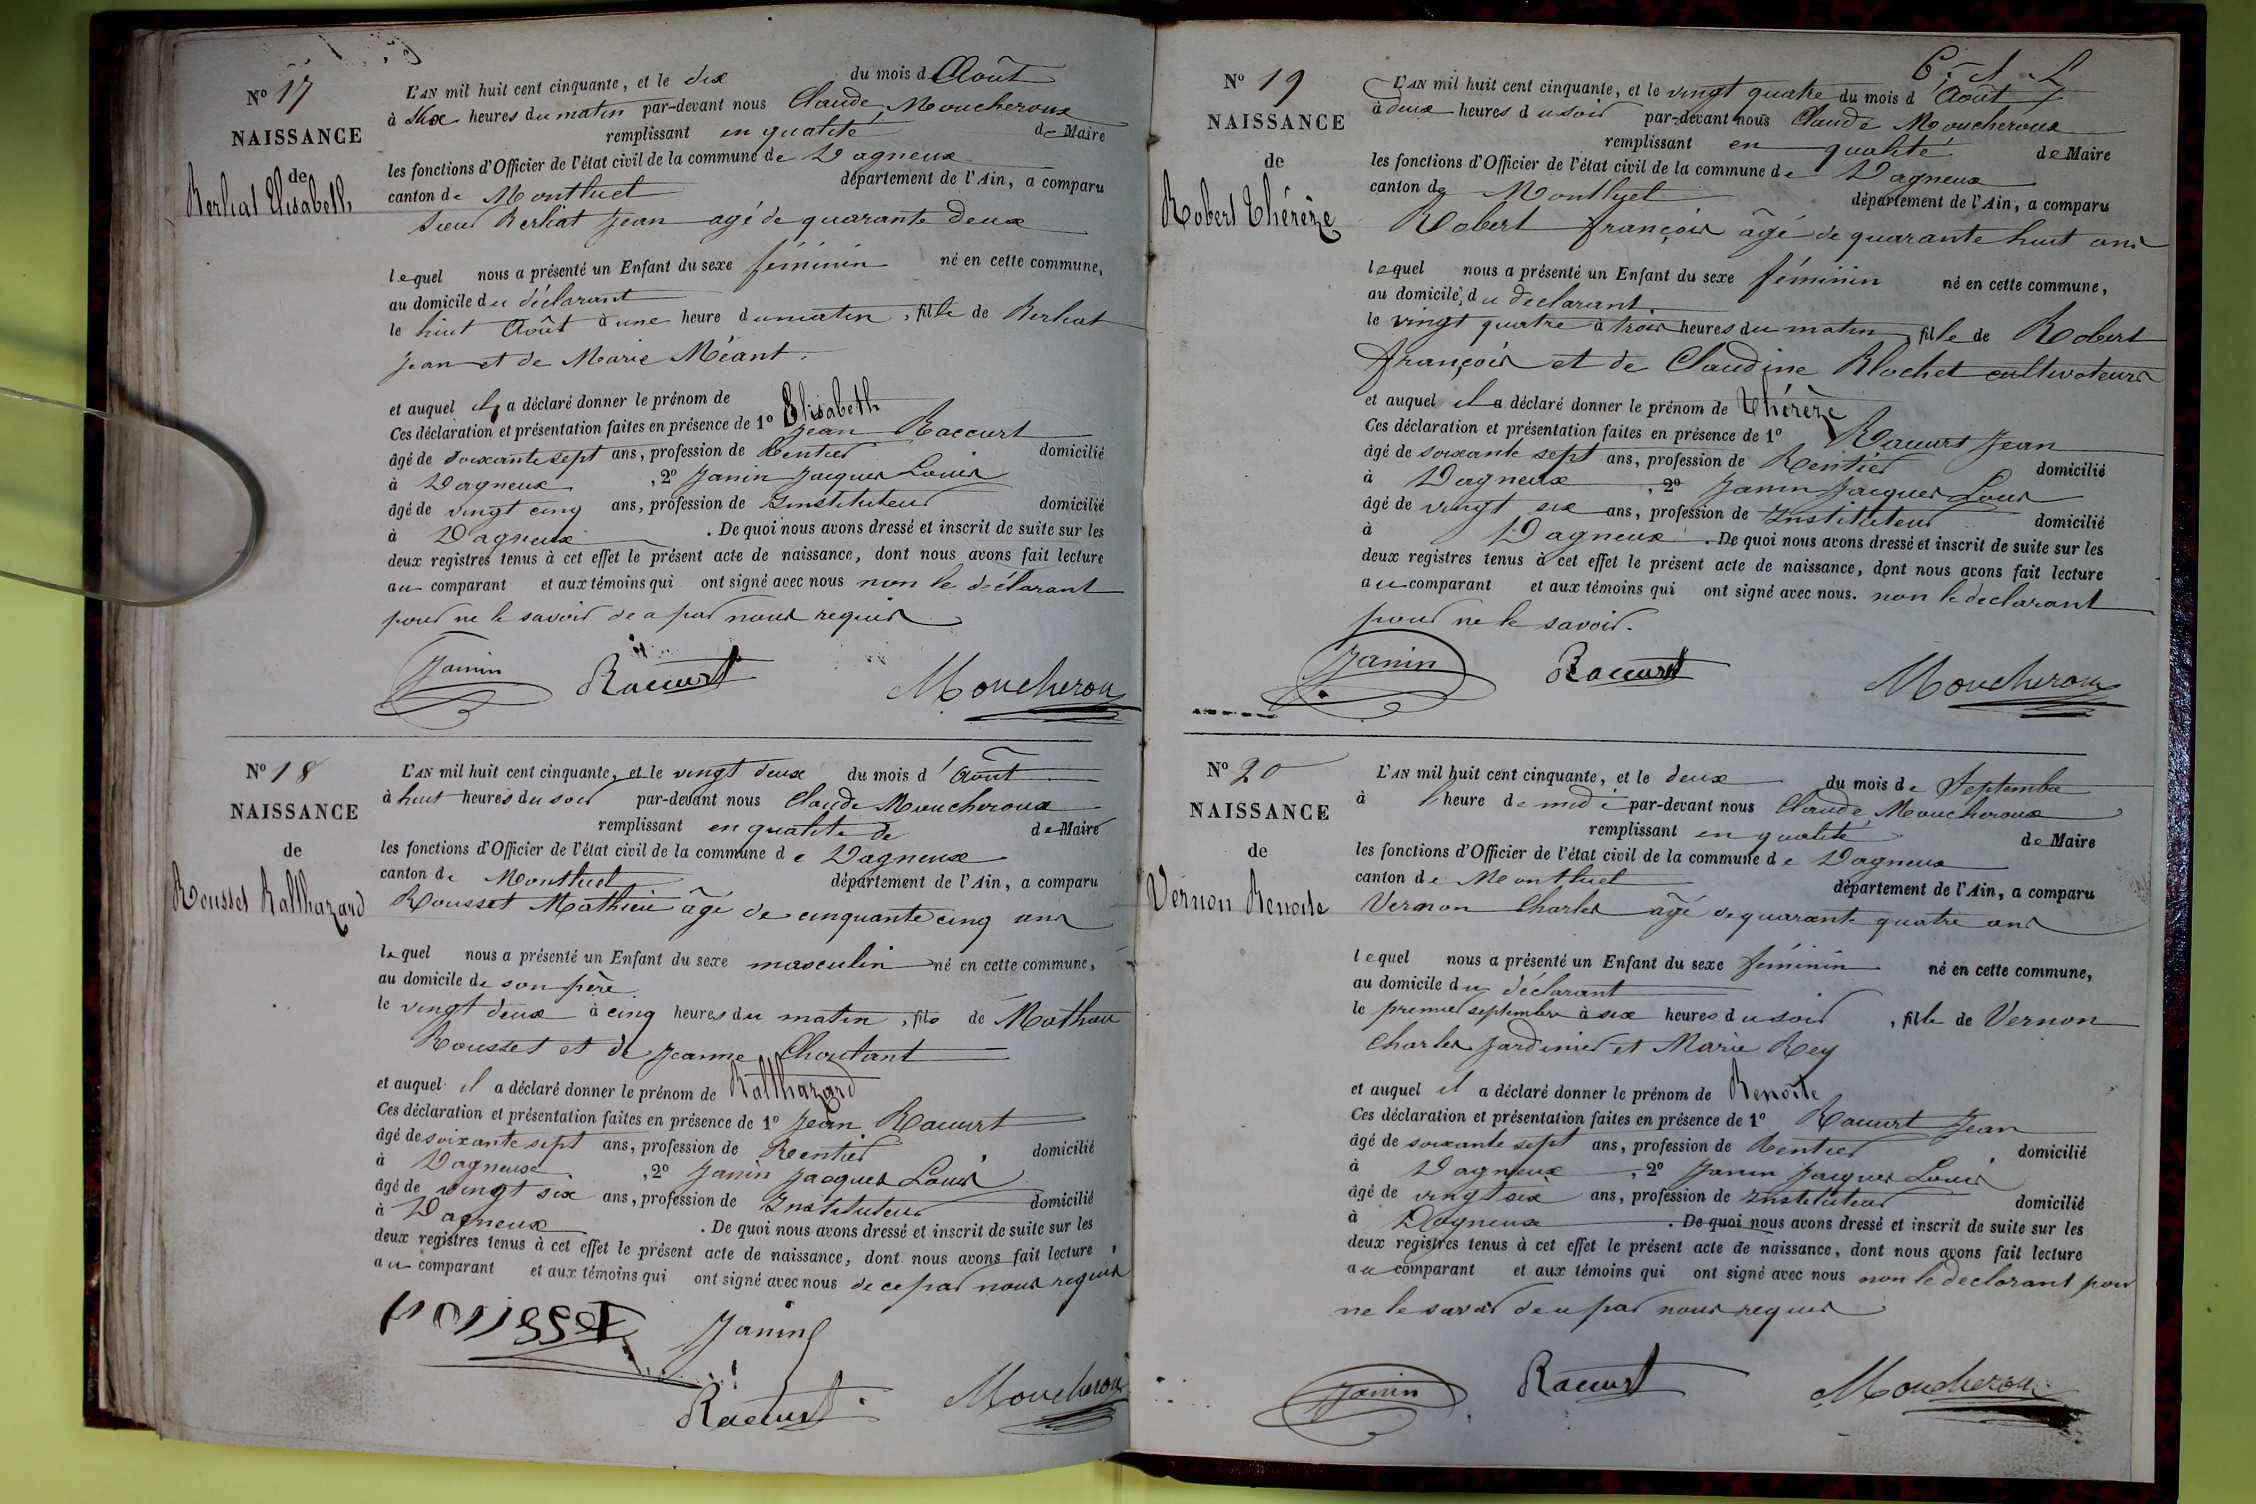 N° 17
NAISSANCE
de
Berliat Elisabeth
L'AN mil huit cent cinquante, et le dix du mois d Août
à Six heures du matin par-devant nous Claude Moucheroux
remplissant en qualité de Maire
les fonctions d'Officier de l'état civil de la commune de Dagneux
canton de Montluel département de l'Ain, a comparu
sieur Berliat Jean agé de quarante deux
lequel nous a présenté un Enfant du sexe féminin né en cette commune,
au domicile du déclarant
le huit Août à une heure du matin, fille de Berliat
Jean et de Marie Méant.
et auquel il a déclaré donner le prénom de Elisabeth
Ces déclaration et présentation faites en présence de 1° Jean Raccurt
âgé de soixante sept ans, profession de Rentier domicilié
à Dagneux, 2° Janin Jacques Louis
âgé de vingt cinq ans, profession de Instituteur domicilié
à Dagneux. De quoi nous avons dressé et inscrit de suite sur les
deux registres tenus à cet effet le présent acte de naissance, dont nous avons fait lecture
au comparant et aux témoins qui ont signé avec nous non le déclarant
pour ne le savoir de a par nous requis
Janin Raccurt Moucheroux
N° 18
NAISSANCE
de
Rousset Balthazard
L'AN mil huit cent cinquante, et le vingt deux du mois d'Août
à huit heures du soir par-devant nous Claude Moucheroux
remplissant en qualité de de Maire
les fonctions d'Officier de l'état civil de la commune de Dagneux
canton de Montluel département de l'Ain, a comparu
Rousset Mathieu âgé de cinquante cinq ans
lequel nous a présenté un Enfant du sexe masculin né en cette commune,
au domicile de son père
le vingt deux à cinq heures du matin, fils de Mathieu
Rousset et de Jeanne Choutant
et auquel il a déclaré donner le prénom de Balthazard
Ces déclaration et présentation faites en présence de 1° Jean Raccurt
âgé de soixante sept ans, profession de Rentier domicilié
à Dagneux, 2° Janin Jacques Louis
âgé de vingt six ans, profession de Instituteur domicilié
à Dagneux. De quoi nous avons dressé et inscrit de suite sur les
deux registres tenus à cet effet le présent acte de naissance, dont nous avons fait lecture
au comparant et aux témoins qui ont signé avec nous de ce par nous requis
rousset Janin
Raccurt Moucheroux
N° 19
NAISSANCE
de
Robert Thérèze
L'AN mil huit cent cinquante, et le vingt quatre du mois d Août
à deux heures du soir par-devant nous Claude Moucheroux
remplissant en qualité de Maire
les fonctions d'Officier de l'état civil de la commune de Dagneux
canton de Montluel département de l'Ain, a comparu
Robert françois âgé de quarante huit ans
lequel nous a présenté un Enfant du sexe féminin né en cette commune,
au domicile du declarant
le vingt quatre à trois heures du matin, fille de Robert
françois et de Claudine Blochet cultivateurs
et auquel il a déclaré donner le prénom de Thérèze
Ces déclaration et présentation faites en présence de 1° Raccurt Jean
âgé de soixante sept ans, profession de Rentier domicilié
à Dagneux, 2° Janin Jacques Louis
âgé de vingt six ans, profession de Instituteur domicilié
à Dagneux. De quoi nous avons dressé et inscrit de suite sur les
deux registres tenus à cet effet le présent acte de naissance, dont nous avons fait lecture
au comparant et aux témoins qui ont signé avec nous. non le declarant
pour ne le savoir.
Janin Raccurt Moucheroux
N° 20
NAISSANCE
de
Vernon Benoite
L'AN mil huit cent cinquante, et le deux du mois de Septembre
à heure de midi par-devant nous Claude Moucheroux
remplissant en qualité de Maire
les fonctions d'Officier de l'état civil de la commune de Dagneux
canton de Montluel département de l'Ain, a comparu
Vernon Charles âgé de quarante quatre ans
lequel nous a présenté un Enfant du sexe féminin né en cette commune,
au domicile du déclarant
le premier septembre à six heures du soir, fille de Vernon
Charles Jardinier et Marie Rey
et auquel il a déclaré donner le prénom de Benoite
Ces déclaration et présentation faites en présence de 1° Raccurt Jean
âgé de soixante sept ans, profession de Rentier domicilié
à Dagneux, 2° Janin Jacques Louis
âgé de vingt six ans, profession de Instituteur domicilié
à Dagneux. De quoi nous avons dressé et inscrit de suite sur les
deux registres tenus à cet effet le présent acte de naissance, dont nous avons fait lecture
au comparant et aux témoins qui ont signé avec nous non le declarant pour
ne le savoir de a par nous requis
Janin Raccurt Moucheroux